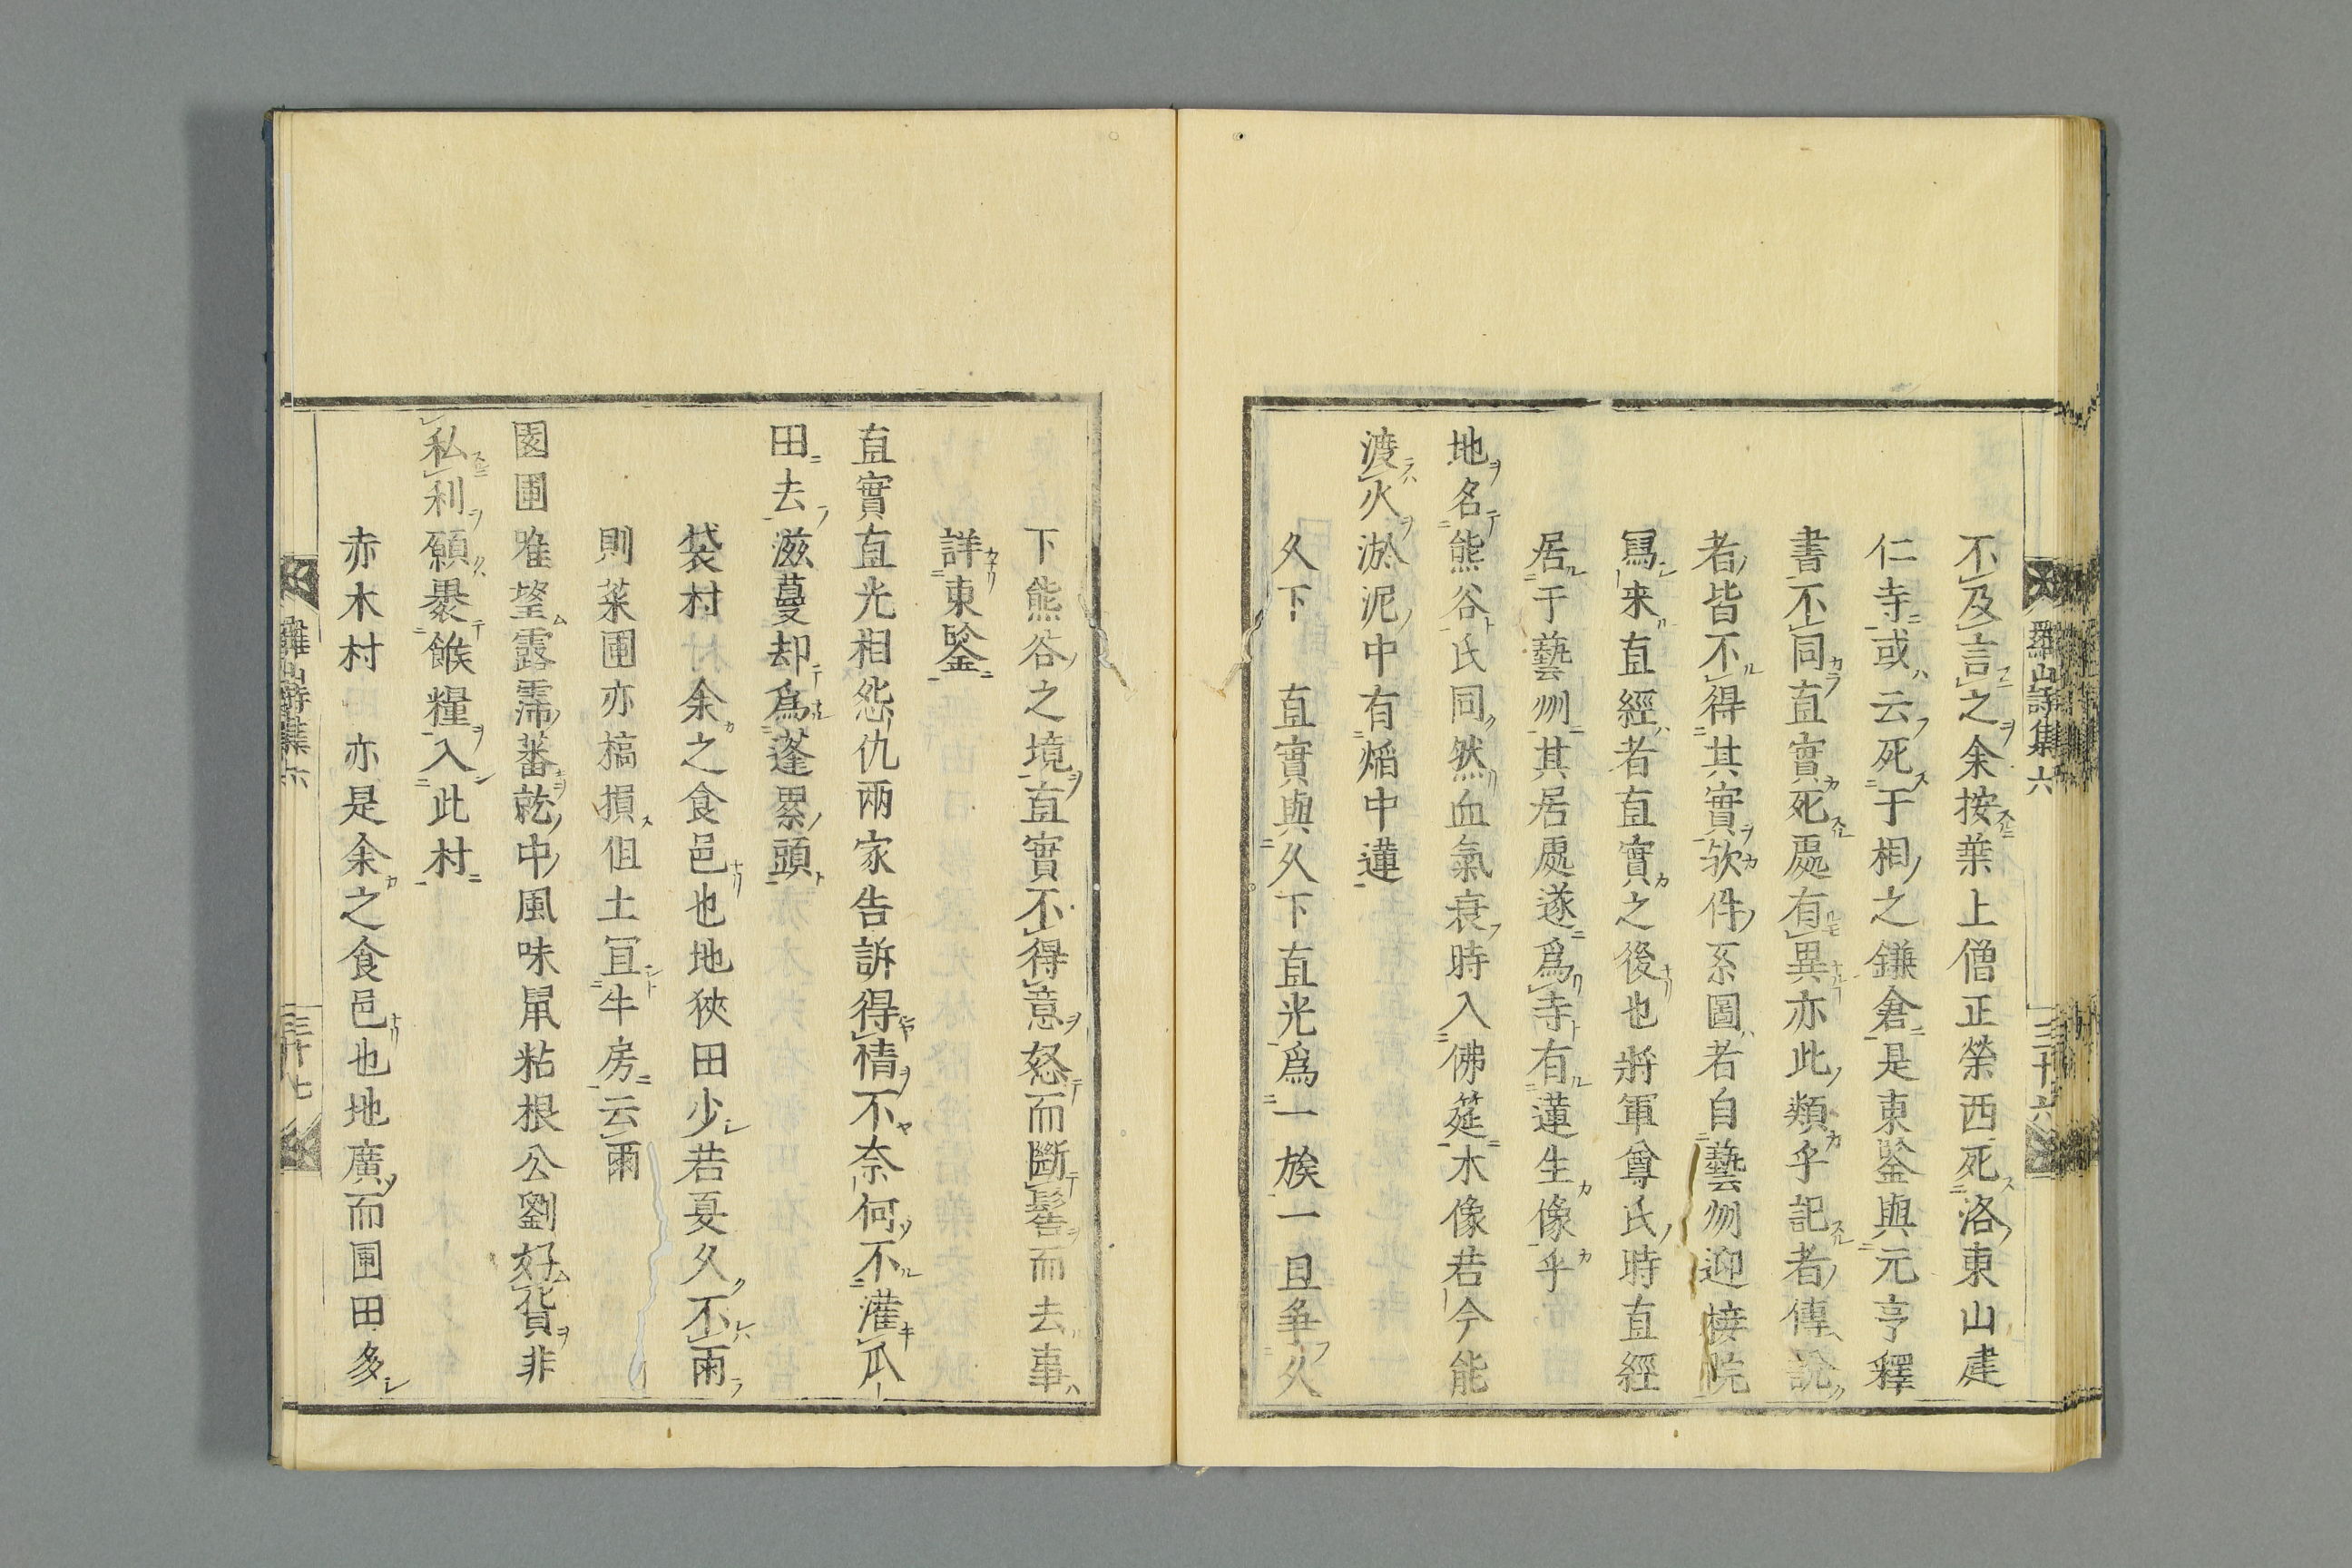 羅山詩集六 三十六
不及言之余按葉上僧正榮西死洛東山建
仁寺或云死于相之鎌倉是東鑒與元亨釋
書不同直實死處有異亦此類乎記者傳說
者皆不得其實欤件系圖者自藝州迎接院
寫来直經者直實之後也將軍尊氏時直經
居于藝州其居處遂爲寺有蓮生像乎
地名熊谷氏同然血氣衰時入佛筵木像若今能
渡火淤泥中有熖中蓮
久下 直實與久下直光爲一族一旦争久
下熊谷之境直實不得意怒而斷髻而去事
詳東鑒
直實直光相怨仇兩家告訴得情不奈何不灌瓜
田去滋蔓却爲蓬累頭
袋村 余之食邑也地狹田少若夏久不雨
則菜圃亦槁損但土冝牛房云爾
園圃唯望露霈蕃乾中風味鼠粘根公劉好貨非
私利願褁餱糧入此村
赤木村 亦是余之食邑也地廣而圃田多
羅山詩集六 三十七